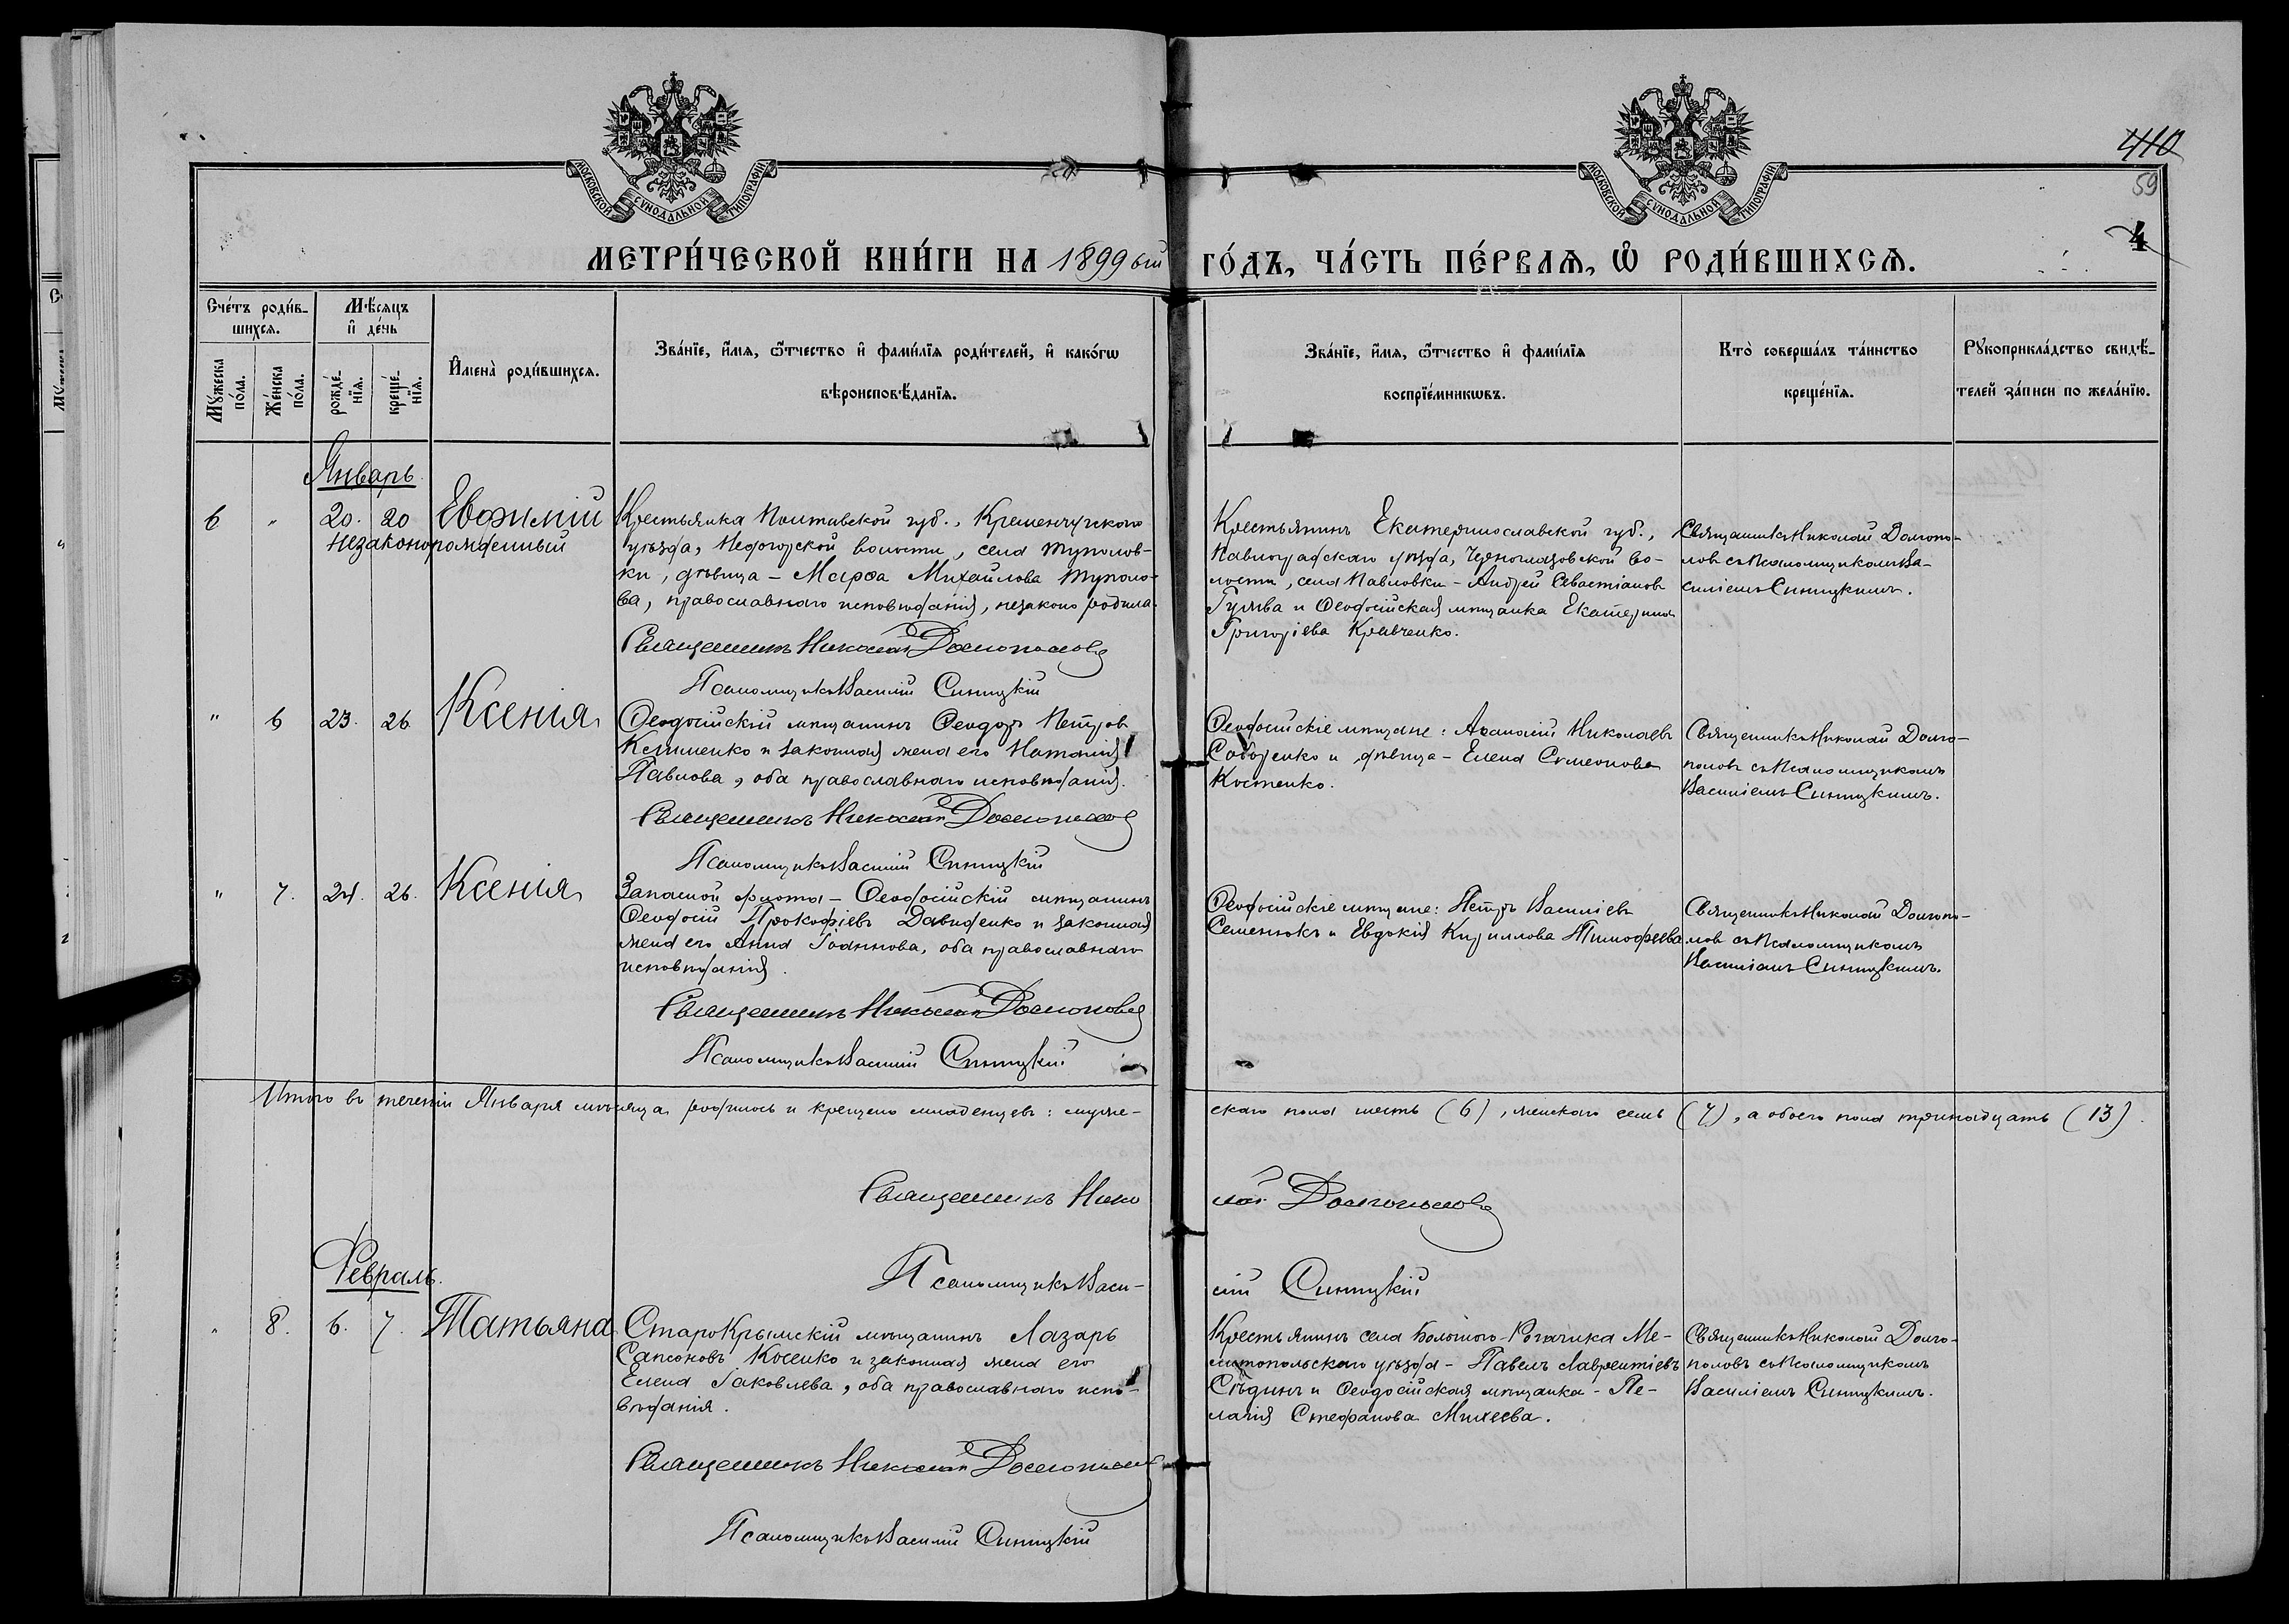 МОСКОВСКОЙ СУНОДАЛЬНОЙ ТИПОГРАФІИ
МОСКОВСКОЙ СУНОДАЛЬНОЙ ТИПОГРАФІИ
410
59
4
МЕТРИ́ЧЕСКОЙ КНИ́ГИ НА 1899ый ГО́ДЪ, ЧА́СТЬ ПЕ́РВАѦ, Ѡ҆ РОДИ́ВШИХСѦ.
Сче́тъ роди́в-
шихсѧ.
Мѣ́сяцъ
и҆ де́нь
Мꙋ́жеска
по́ла.
Же́нска
по́ла.
рожде́-
нїѧ.
креще́-
нїѧ.
И҆мена̀ роди́вшихсѧ.
Зва́нїе, и҆́мѧ, ѻ҆́тчество и҆ фами́лїѧ роди́телей, и҆ како́гѡ
вѣроисповѣ́данїѧ.
Зва́нїе, и҆́мѧ, ѻ҆́тчество и҆ фами́лїѧ
воспрїе́мникѡвъ.
Кто̀ соверша́лъ та́инство
креще́нїѧ.
Рꙋкоприкла́дство свидѣ́-
телей за́писи по жела́нїю.
Январь.
6 " 20. 20 Евфимій
незаконорожденный
Крестьянка Полтавской губ., Кременчугскаго
уѣзда, Недогорской волости, села Туполов-
ки, дѣвица – Марѳа Михайлова Туполо-
ва, православнаго исповѣданія, незаконо родила.
Священникъ Николай Долгополовъ
Псаломщикъ Василій Синицкій
Крестьянинъ Екатеринославской губ.,
Павлоградскаго уѣзда, Черноглазовской во-
лости, села Павловки – Андрей Севастіановъ
Гулява и Ѳеодосійская мѣщанка Екатерина
Григорьева Кравченко.
Священникъ Николай Долгопо-
ловъ съ Псаломщикомъ Ва-
силіемъ Синицкимъ.
" 6 23. 26 Ксенія
Ѳеодосійскій мѣщанинъ Ѳеодоръ Петровъ
Клименко и законная жена его Наталія
Павлова, оба православнаго исповѣданія.
Священникъ Николай Долгополовъ
Псаломщикъ Василій Синицкій
Ѳеодосійскіе мѣщане: Аѳанасій Николаевъ
Соборенко и дѣвица – Елена Симеонова
Костенко.
Священникъ Николай Долго-
половъ съ Псаломщикомъ
Василіемъ Синицкимъ.
" 7. 24. 26. Ксенія
Запасной флота – Ѳеодосійскій мѣщанинъ
Ѳеодосій Прокофіевъ Давиденко и законная
жена его Анна Іоаннова, оба православнаго
исповѣданія.
Священникъ Николай Долгополовъ
Псаломщикъ Василій Синицкій
Ѳеодосійскіе мѣщане: Петръ Василіевъ
Семенюкъ и Евдокія Кириллова Тимофѣева
Священникъ Николай Долгопо-
ловъ съ Псаломщикомъ
Василіемъ Синицкимъ.
Итого въ теченіи Января мѣсяца родилось и крещено младенцевъ: муже-
скаго пола шесть (6), женскаго семь (7), а обоего пола тринадцать (13).
Священникъ Николай Долгополовъ
Псаломщикъ Василій Синицкій
Февраль.
" 8. 6. 7. Татьяна
СтароКрымскій мѣщанинъ Лазарь
Сапсоновъ Косенко и законная жена его
Елена Іаковлева, оба православнаго испо-
вѣданія.
Священникъ Николай Долгополовъ
Псаломщикъ Василій Синицкій
Крестьянинъ села Большого-Рогачика Ме-
литопольскаго уѣзда – Павелъ Лаврентіевъ
Сѣдинъ и Ѳеодосійская мѣщанка – Пе-
лагія Стефанова Михеева.
Священникъ Николай Долго-
половъ съ Псаломщикомъ
Василіемъ Синицкимъ.